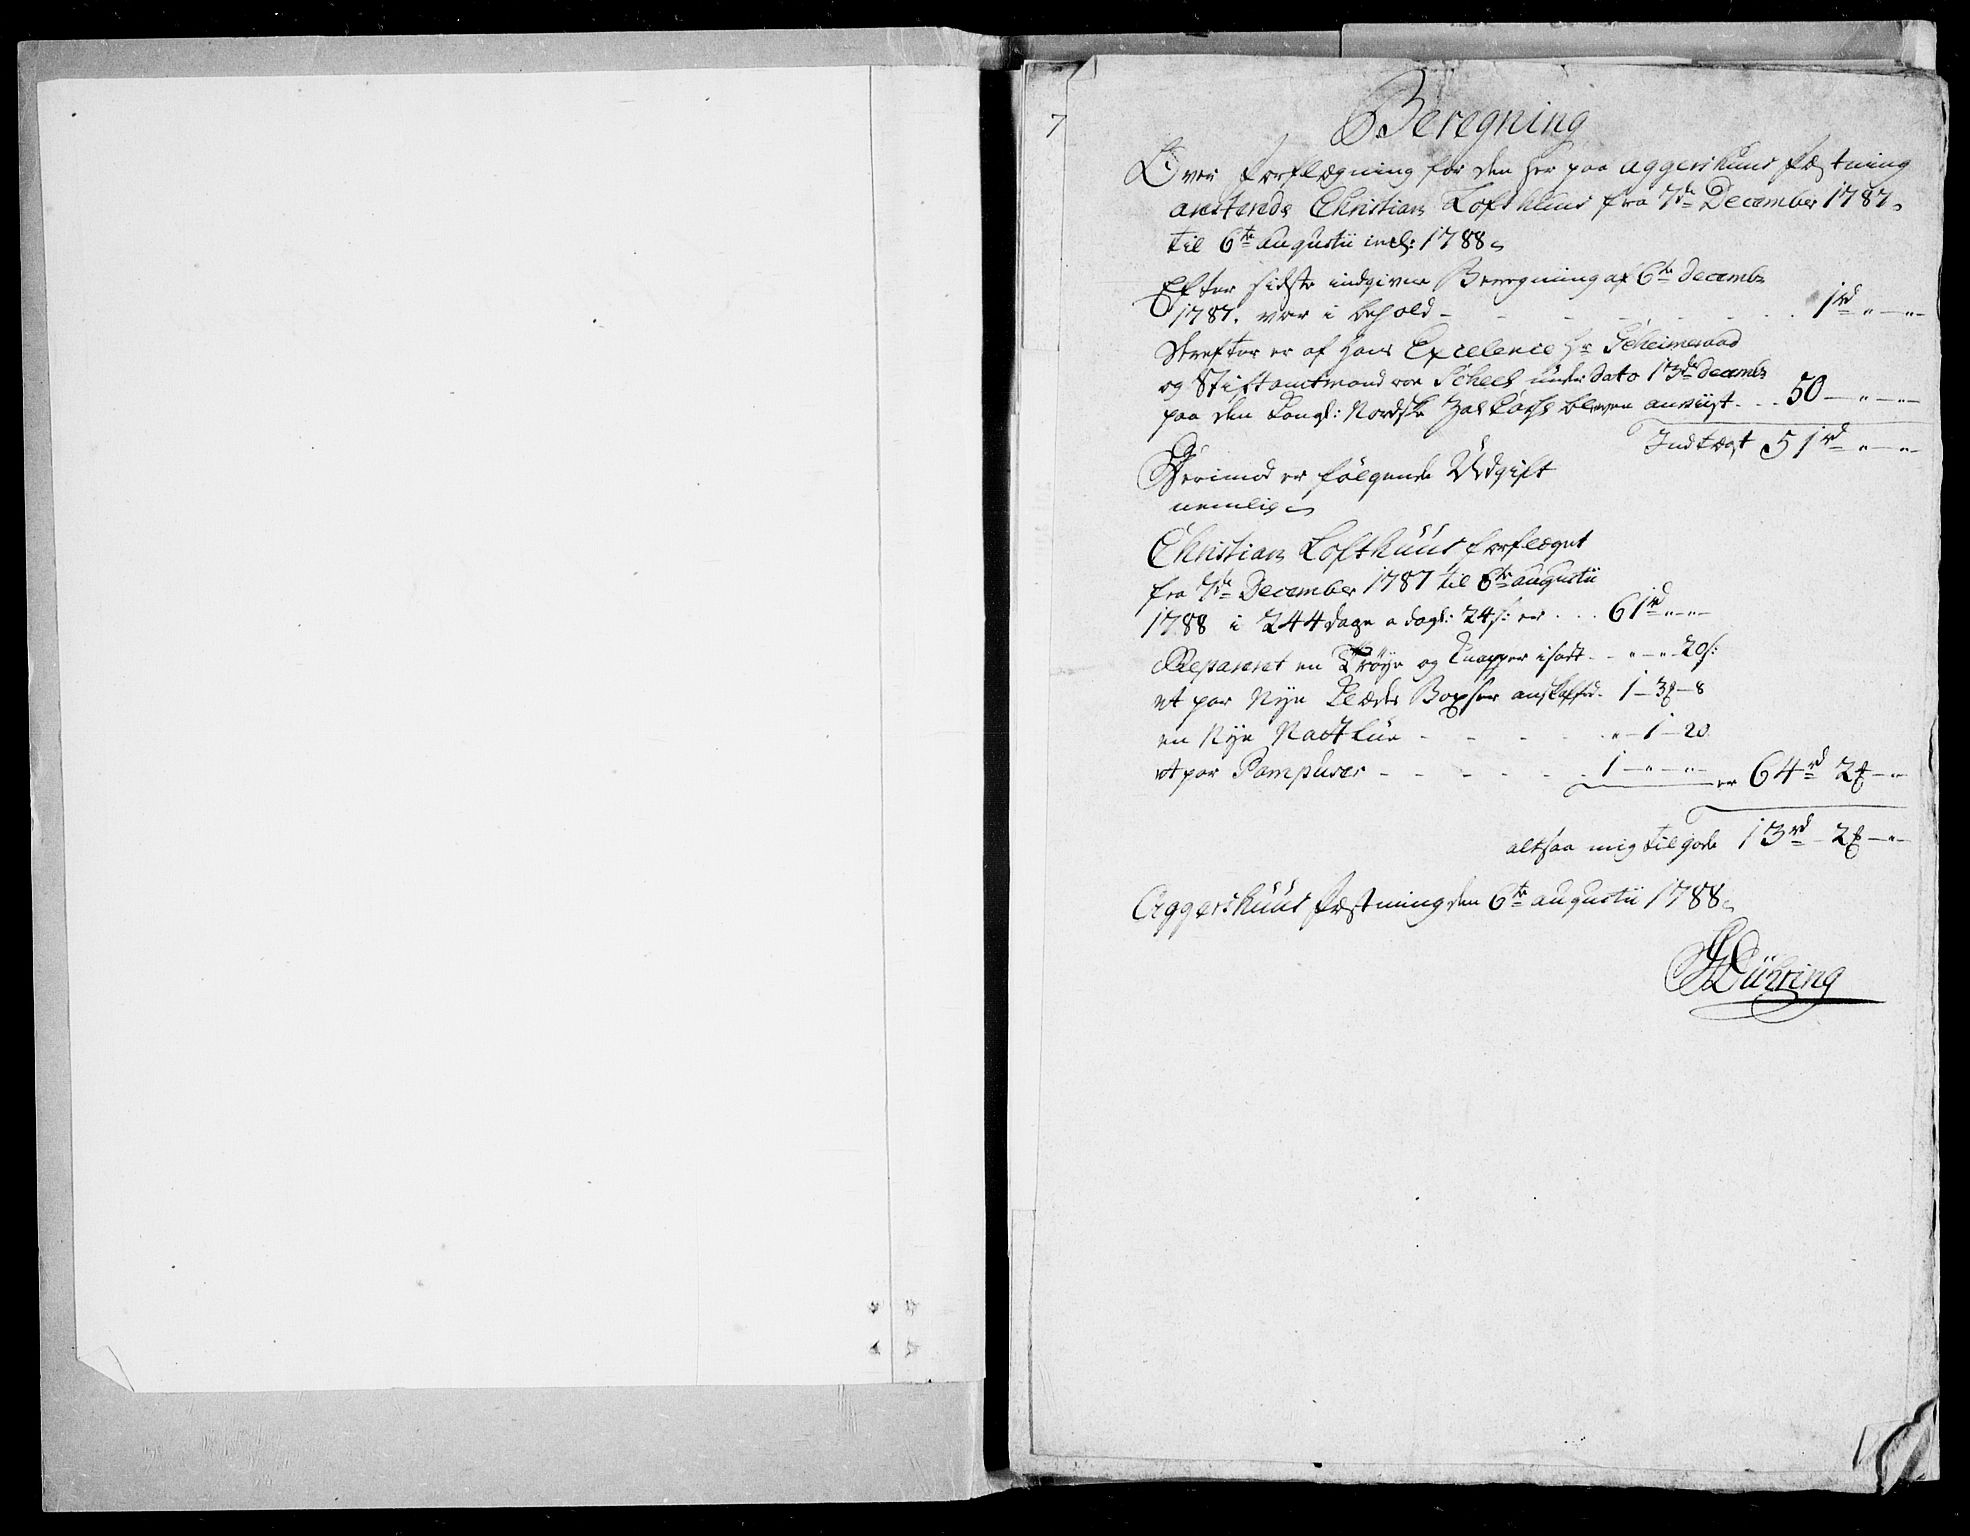 7
Beregning
Over Forflægning for den her paa Aggershuus Fæstning
aristerede Christian Lofthuus fra 7de December 1787
til 6te Augustii incl: 1788
Efter sidste indgivne Beregning af 6te Decembr
1787. var i behold - - - - - 1rd „ - „ -
Derefter er af Hans Excelence Hr Geheimeraad
og Stiftamtmand von Scheel under Dato 13de Decembr
paa den Kongl: Nordske Zahl Casse bleven anviist - . . 50 - „ - „ -
Indtægt 51rd „ - „ -
Derimod er følgende Udgift
nemlig
Christian Lofthuus forflæget
fra 7de December 1787 til 6te Augustii
1788 i 244 dage a dagl: 24 s: er . . . 61rd „ - „ -
Repareret en Trøye og Knapper isadt - - „ - „ - 20 s:
et par Nye Klædes Boxser anskaffed - 1 - 3 - 8
en Nye Natt Lue - - - - - „ - 1 - 20
et par Pampuser - - - - - 1 - „ - „ - er 64rd 2 - „
altsaa mig tilgode 13rd - 2 - „ -
Aggershuus Fæstning den 6te Augustii 1788
Dühring
1